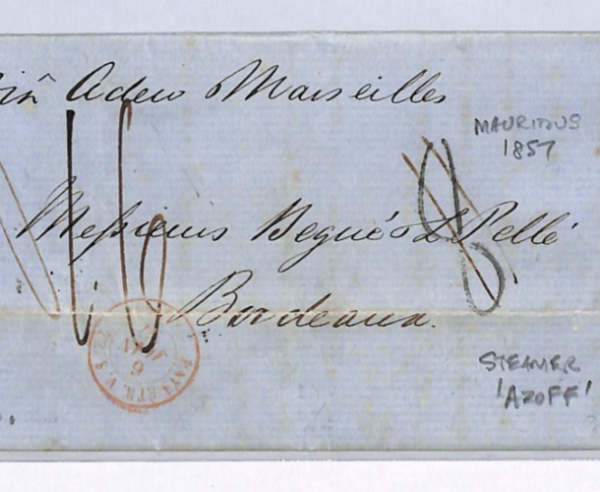 Viâ Aden & Marseilles
MAURITIUS
1857
8
Messieurs Begué & L Pellé
Bordeaux.
STEAMER
'AZOFF'